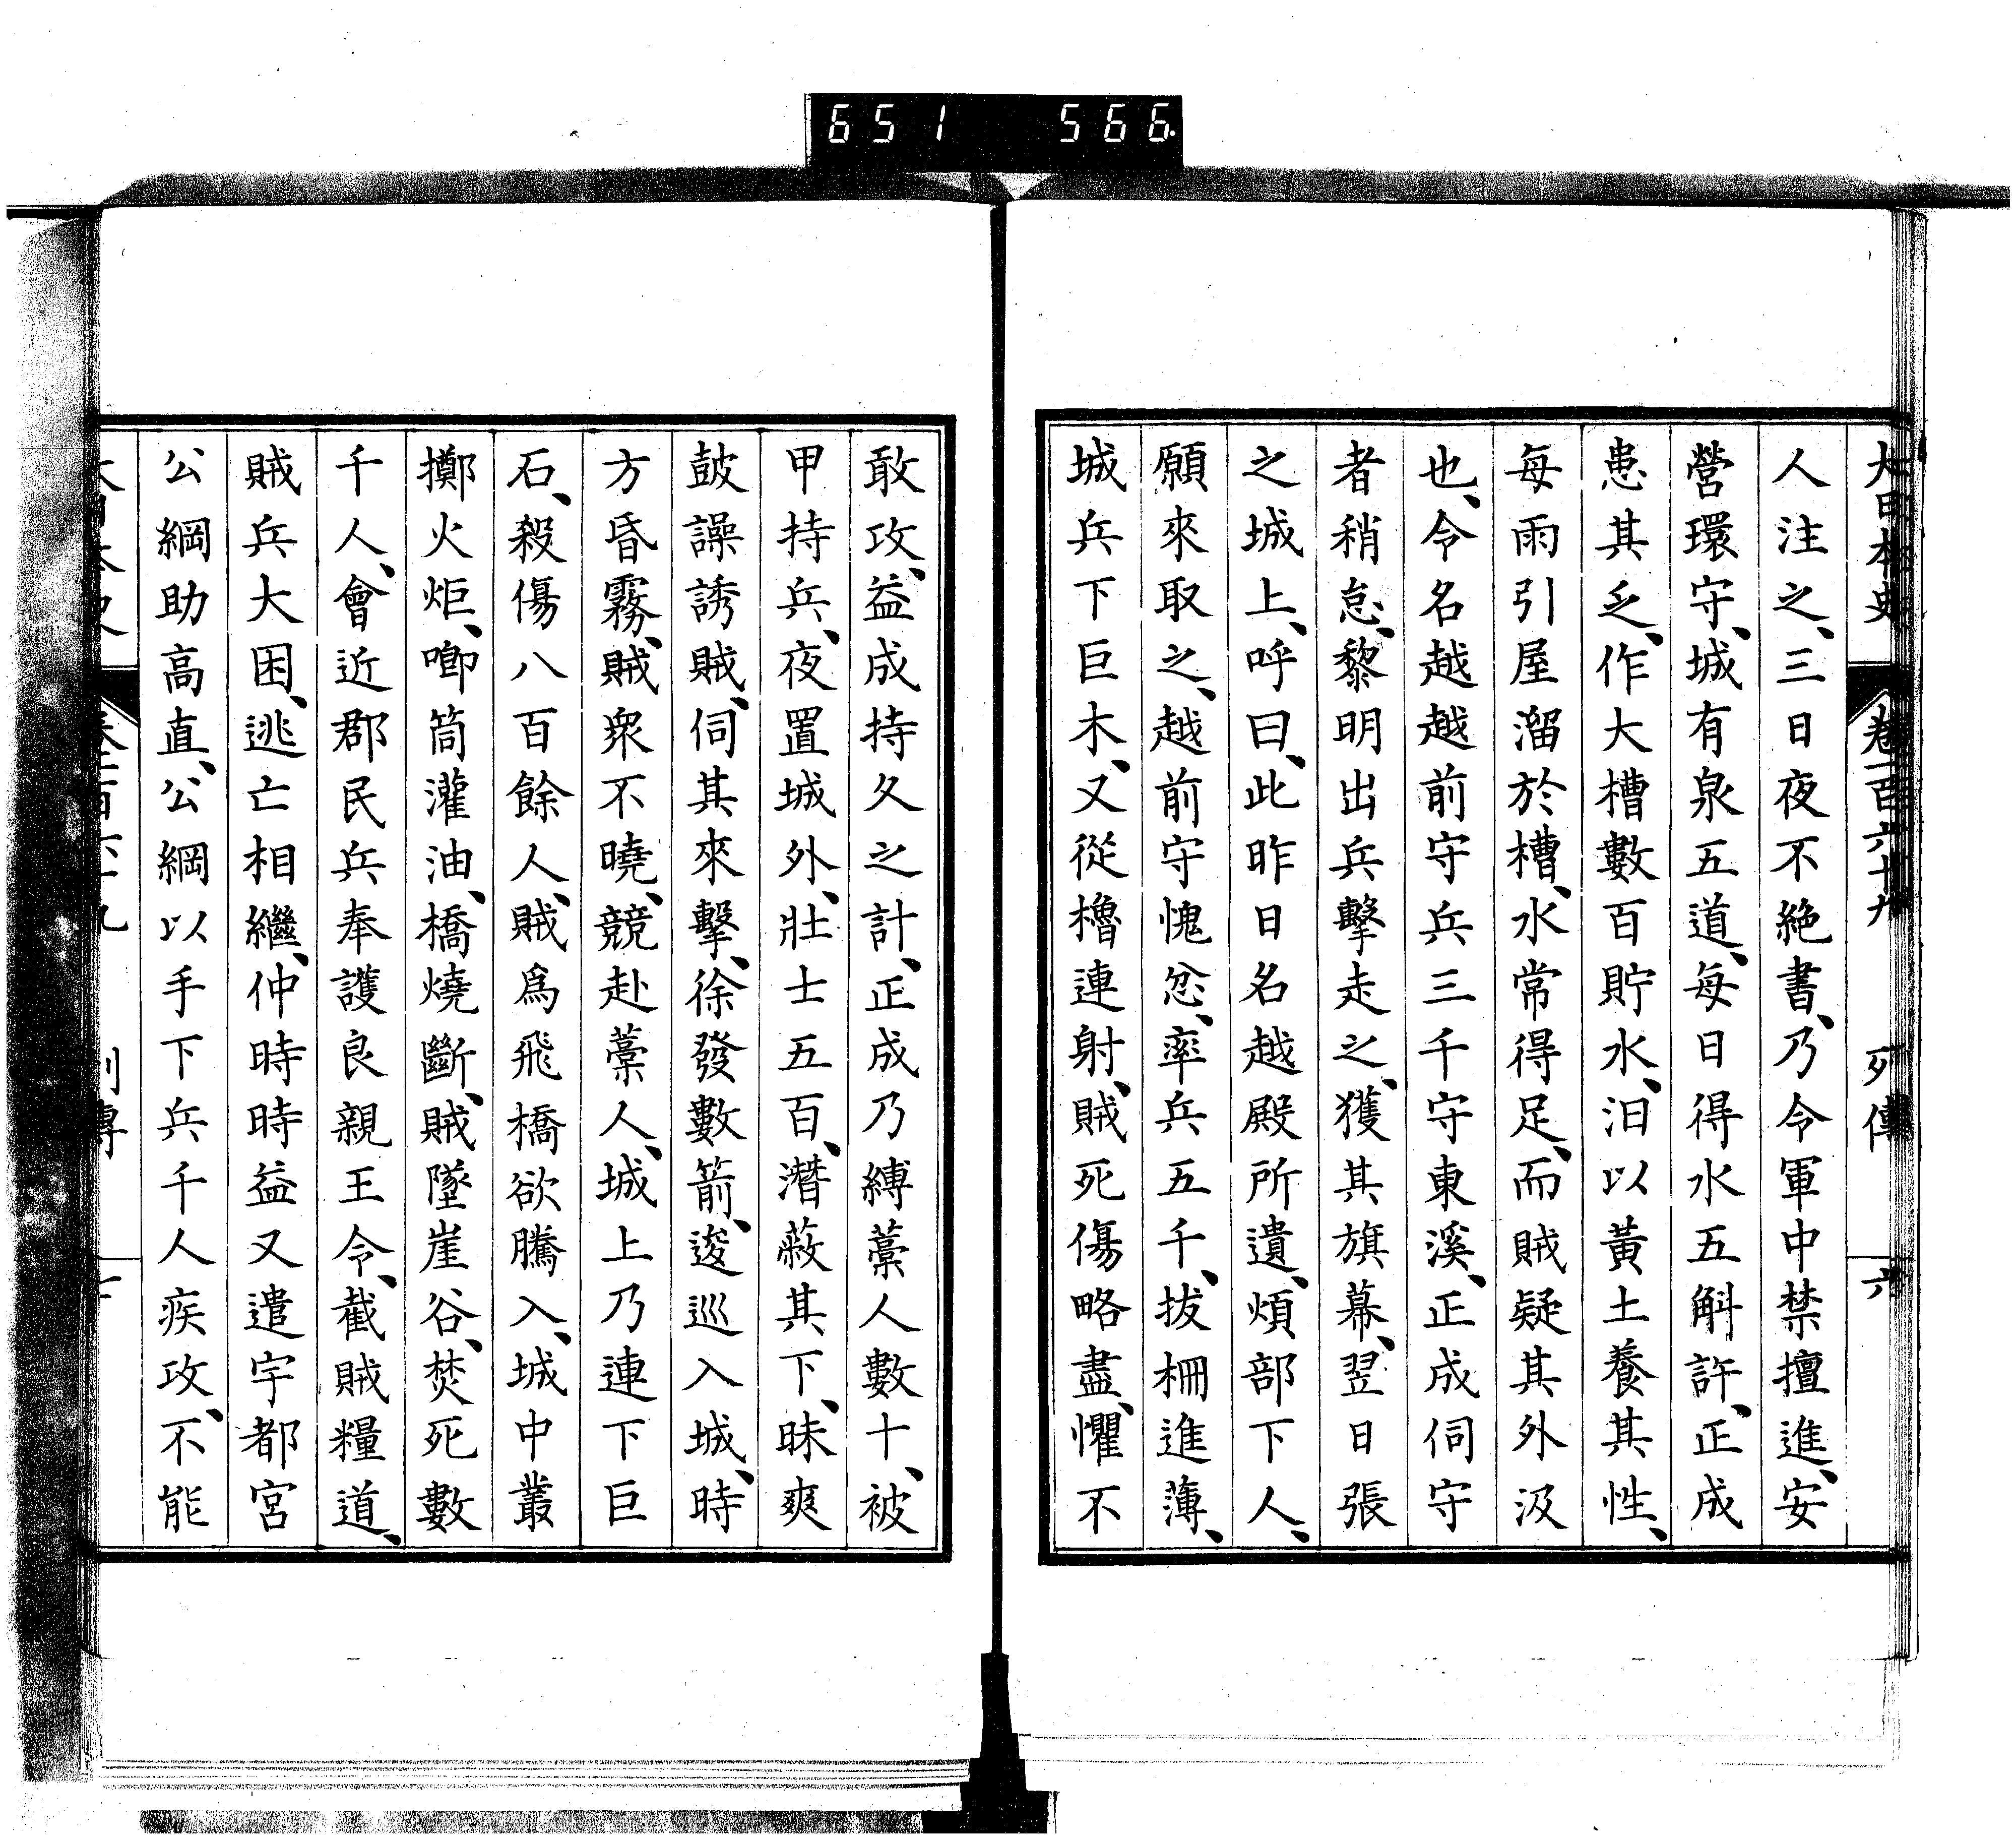 651 566
大日本史 卷一百六十九 列傳 六
人注之、三日夜不絶書、乃令軍中禁擅進、安
營環守、城有泉五道、每日得水五斛許、正成
患其乏、作大槽數百貯水、汨以黃土養其性、
每雨引屋溜於槽、水常得足、而賊疑其外汲
也、令名越越前守兵三千守東溪、正成伺守
者稍怠、黎明出兵擊走之、獲其旗幕、翌日張
之城上、呼曰、此昨日名越殿所遺、煩部下人、
願來取之、越前守愧忿、率兵五千、拔柵進薄、
城兵下巨木、又從櫓連射、賊死傷略盡、懼不
敢攻、益成持久之計、正成乃縛藁人數十、被
甲持兵、夜置城外、壯士五百、潛蔽其下、昧爽
鼓譟誘賊、伺其來擊、徐發數箭、逡巡入城、時
方昏霧、賊衆不曉、競赴藁人、城上乃連下巨
石、殺傷八百餘人、賊爲飛橋欲騰入、城中叢
擲火炬、喞筒灌油、橋燒斷、賊墜崖谷、焚死數
千人、會近郡民兵奉護良親王令、截賊糧道、
賊兵大困、逃亡相繼、仲時時益又遣宇都宮
公綱助高直、公綱以手下兵千人疾攻、不能